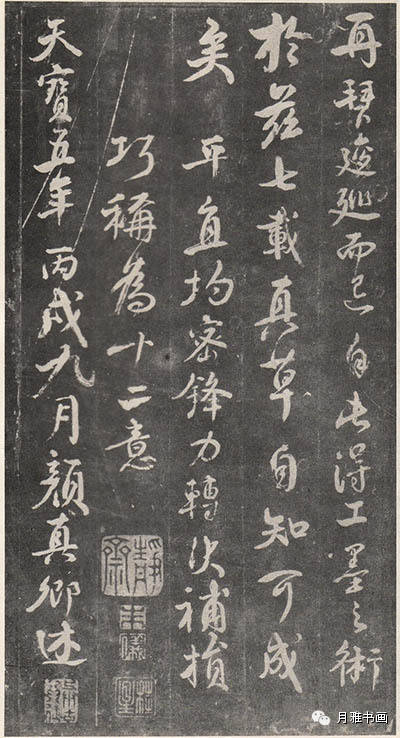 再拜逡廵而退自此得工墨之術
於茲七載真草自知可成
矣 平直均密鋒力轉決補損
巧稱為十二意
天寶五年丙戌九月顏真卿述
月雅书画